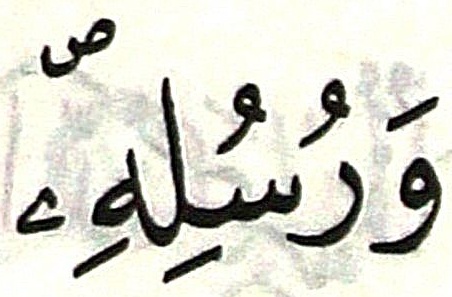 وَرُسُلِهِۦ ۖ